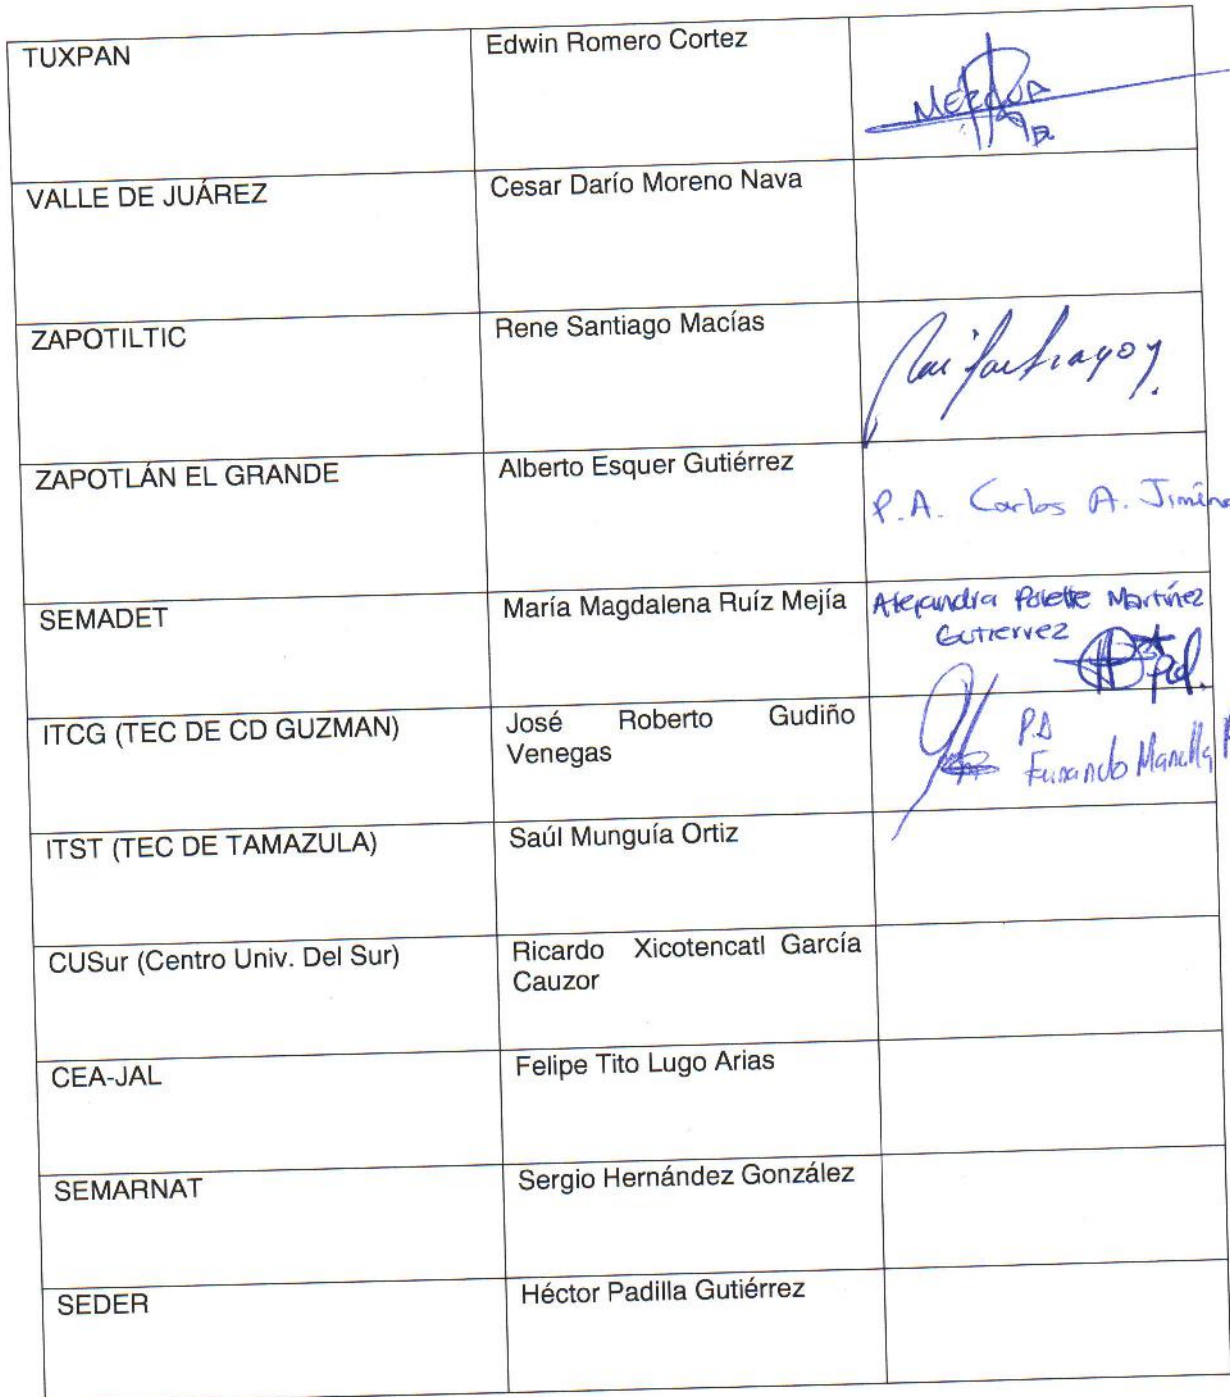 TUXPAN
Edwin Romero Cortez
VALLE DE JUÁREZ
Cesar Darío Moreno Nava
ZAPOTILTIC
Rene Santiago Macías
ZAPOTLÁN EL GRANDE
Alberto Esquer Gutiérrez
P.A. Carlos A. Jiméne
SEMADET
María Magdalena Ruíz Mejía
Alejandra Polette Martínez
Gutierrez
ITCG (TEC DE CD GUZMAN)
José Roberto Gudiño
Venegas
P.A
Fernando
ITST (TEC DE TAMAZULA)
Saúl Munguía Ortiz
CUSur (Centro Univ. Del Sur)
Ricardo Xicotencatl García
Cauzor
CEA-JAL
Felipe Tito Lugo Arias
SEMARNAT
Sergio Hernández González
SEDER
Héctor Padilla Gutiérrez